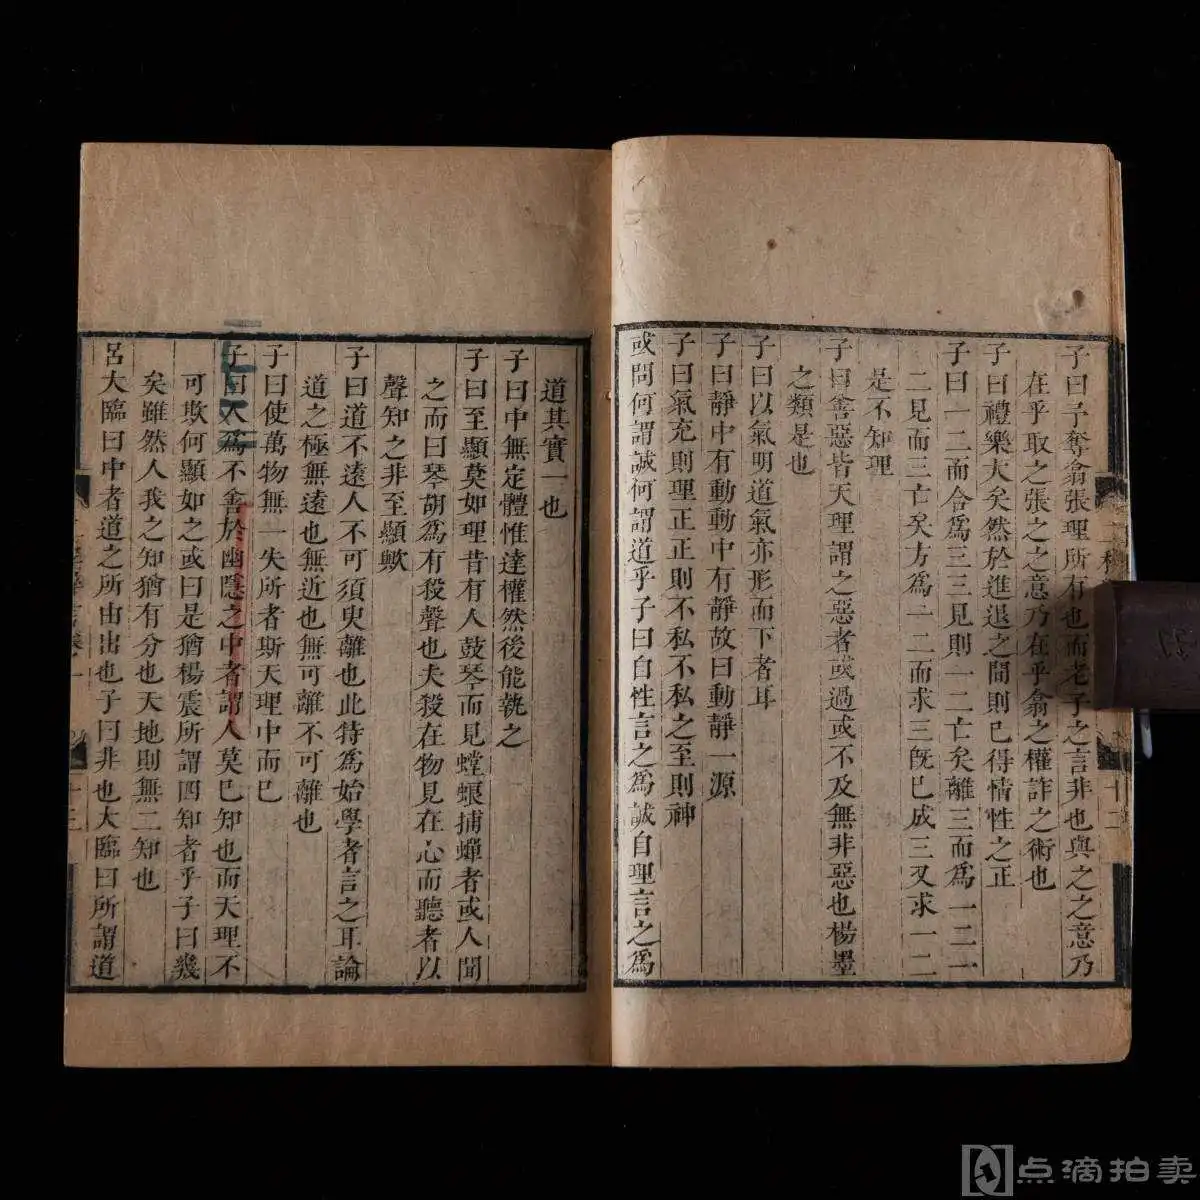 子曰予奪翕張理所有也而老子之言非也與之之意乃
在乎取之張之之意乃在乎翕之權詐之術也
子曰禮樂大矣然於進退之間則已得情性之正
子曰一二而合為三三見則一二亡矣離三而為一二一
二見而三亡矣方為一二而求三既已成三又求一二
是不知理
子曰善惡皆天理謂之惡者或過或不及無非惡也楊墨
之類是也
子曰以氣明道氣亦形而下者耳
子曰靜中有動動中有靜故曰動靜一源
子曰氣充則理正正則不私不私之至則神
或問何謂誠何謂道乎子曰自性言之為誠自理言之為
十二
道其實一也
子曰中無定體惟達權然後能執之
子曰至顯莫如理昔有人鼓琴而見螳螂捕蟬者或人聞
之而曰琴胡為有殺聲也夫殺在物見在心而聽者以
聲知之非至顯歟
子曰道不遠人不可須臾離也此特為始學者言之耳論
道之極無遠也無近也無可離不可離也
子曰使萬物無一失所者斯天理中而已
子曰人為不善於幽隱之中者謂人莫已知也而天理不
可欺何顯如之或曰是猶楊震所謂四知者乎子曰幾
矣雖然人我之知猶有分也天地則無二知也
呂大臨曰中者道之所由出也子曰非也大臨曰所謂道
十三
点滴拍卖